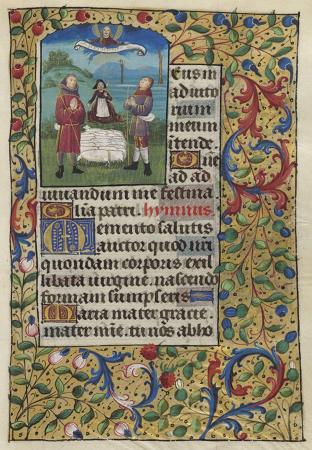 Eus in
adiuto
rium
meum i
tende. Dne
ad ad
iuuandum me festina
Glia patri. hymnus
Memento salutis
auctor quod nri
quondam corporis ex il
libata uirgine nascendo
formam sumpseris
Maria mater gracie
mater mie tu nos ab ho